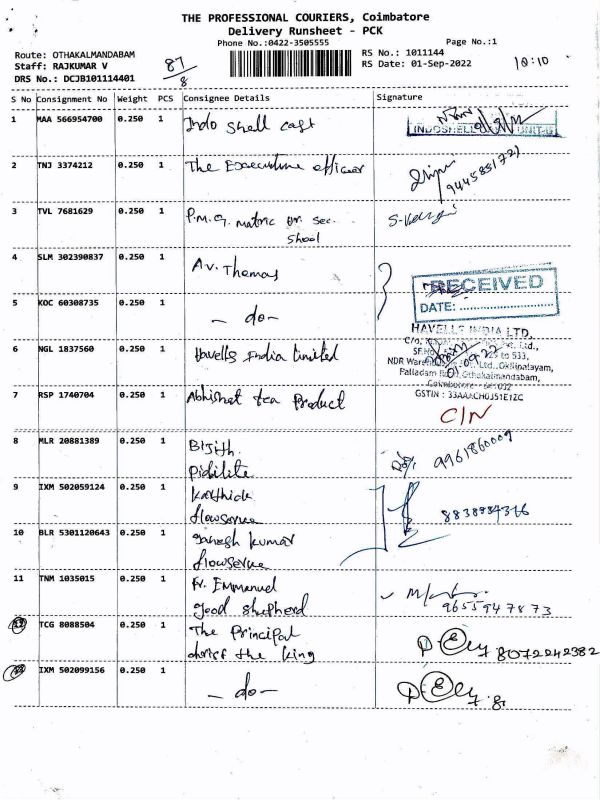 THE PROFESSIONAL COURIERS, Coimbatore
Delivery Runsheet - PCK
Phone No.:0422-3505555
Page No.:1
Route: OTHAKALMANDABAM
Staff: RAJKUMAR V
DRS No.: DCJB101114401
87/8
RS No.: 1011144
RS Date: 01-Sep-2022
10:10
S No Consignment No Weight PCS Consignee Details Signature
1 MAA 566954700 0.250 1 Indo shell cast
INDOSHELL UNIT-
2 TNJ 3374212 0.250 1 The Executive officer
3 TVL 7681629 0.250 1 P.M.G matric hr sec.
4 SLM 302390837 0.250 1 A.V. Thomas
RECEIVED
DATE:
5 KOC 60308735 0.250 1 - do -
HAVELLS INDIA LTD.
6 NGL 1837560 0.250 1 Havells India limited
C/o.
Ltd.,
SF.No. 525 to 533,
NDR Ltd., Okkilipalayam,
Palladam Othakalmandabam,
Coimbatore - 641032
01-09-22
GSTIN : 33AAACH0351E1ZC
7 RSP 1740704 0.250 1 Abhishat tea Product
C/N
8 MLR 20881389 0.250 1 Bijith.
Pidilite
9961860009
9 IXM 502059124 0.250 1 Karthick
flowserve
10 BLR 5301120643 0.250 1 ganesh kumar
flowserve
11 TNM 1035015 0.250 1 Fr. Emmanuel
good shepherd
9655947873
TCG 8088504 0.250 1 The Principal
christ the king
8072242382
IXM 502099156 0.250 1 - do -